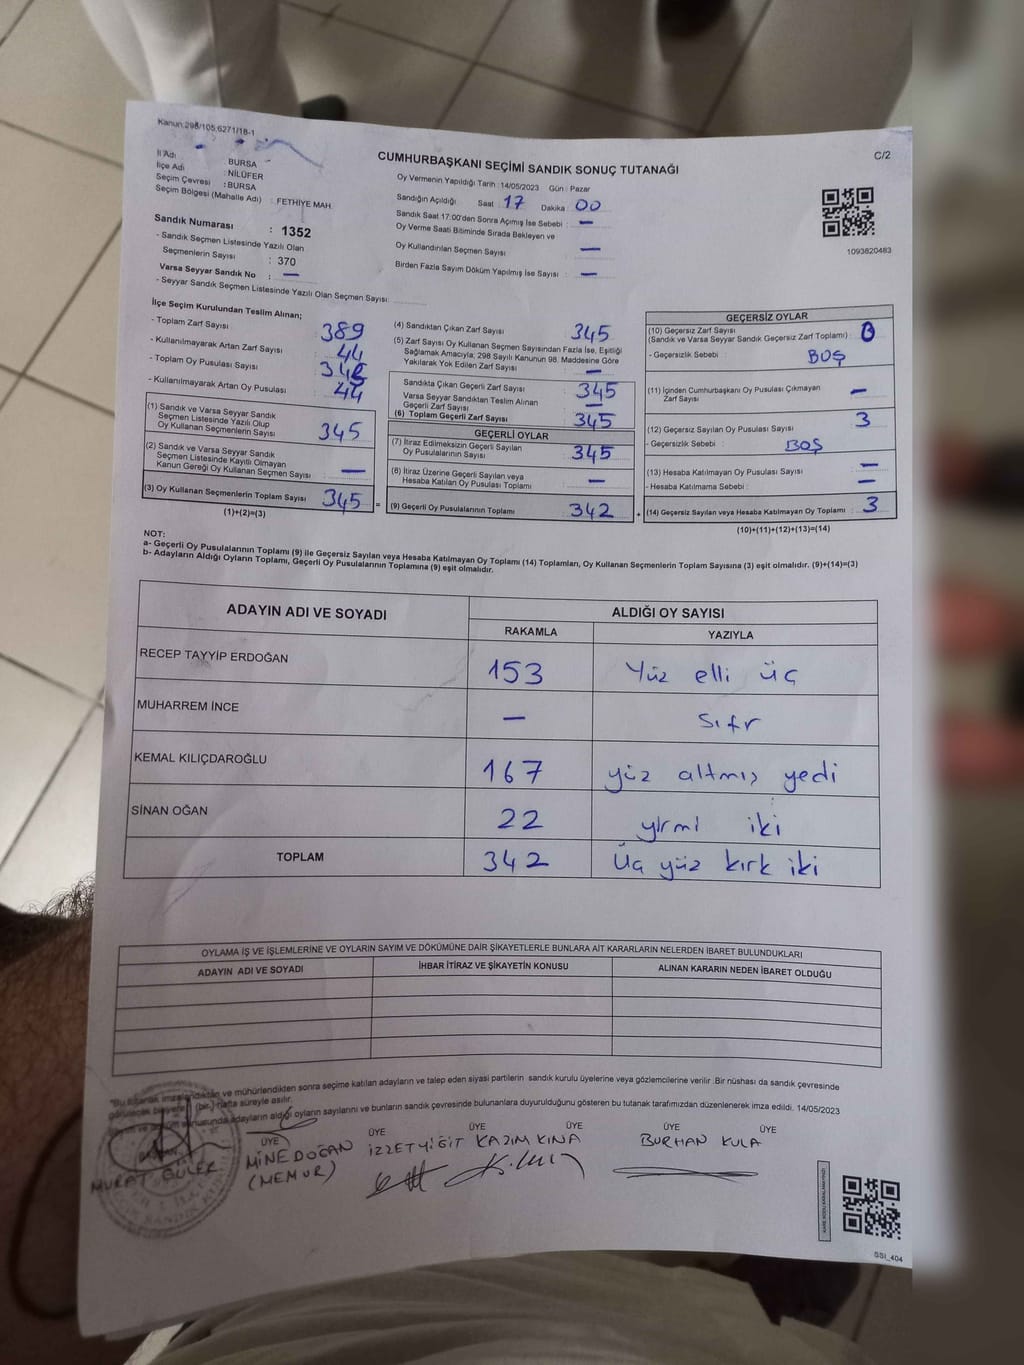 Kanun:298/105,6271/18-1
C/2
CUMHURBAŞKANI SEÇİMİ SANDIK SONUÇ TUTANAĞI
İl Adı : BURSA
İlçe Adı : NİLÜFER
Seçim Çevresi : BURSA
Seçim Bölgesi (Mahalle Adı) : FETHİYE MAH.
Sandık Numarası : 1352
- Sandık Seçmen Listesinde Yazılı Olan
Seçmenlerin Sayısı : 370
Varsa Seyyar Sandık No : —
- Seyyar Sandık Seçmen Listesinde Yazılı Olan Seçmen Sayısı:
Oy Vermenin Yapıldığı Tarih : 14/05/2023 Gün : Pazar
Sandığın Açıldığı Saat 17 Dakika 00
Sandık Saat 17:00'den Sonra Açmış İse Sebebi : —
Oy Verme Saati Bitiminde Sırada Bekleyen ve
Oy Kullandırılan Seçmen Sayısı : —
Birden Fazla Sayım Döküm Yapılmış İse Sayısı : —
1093820483
İlçe Seçim Kurulundan Teslim Alınan;
- Toplam Zarf Sayısı : 389
- Kullanılmayarak Artan Zarf Sayısı : 44
- Toplam Oy Pusulası Sayısı :
- Kullanılmayarak Artan Oy Pusulası : 44
(1) Sandık ve Varsa Seyyar Sandık
Seçmen Listesinde Yazılı Olup
Oy Kullanan Seçmenlerin Sayısı : 345
(2) Sandık ve Varsa Seyyar Sandık
Seçmen Listesinde Kayıtlı Olmayan
Kanun Gereği Oy Kullanan Seçmen Sayısı : —
(3) Oy Kullanan Seçmenlerin Toplam Sayısı : 345
(1)+(2)=(3)
(4) Sandıktan Çıkan Zarf Sayısı : 345
(5) Zarf Sayısı Oy Kullanan Seçmen Sayısından Fazla İse, Eşitliği
Sağlamak Amacıyla; 298 Sayılı Kanunun 98. Maddesine Göre
Yakılarak Yok Edilen Zarf Sayısı : —
Sandıkta Çıkan Geçerli Zarf Sayısı : 345
Varsa Seyyar Sandıktan Teslim Alınan
Geçerli Zarf Sayısı : —
(6) Toplam Geçerli Zarf Sayısı : 345
GEÇERLİ OYLAR
(7) İtiraz Edilmeksizin Geçerli Sayılan
Oy Pusulalarının Sayısı : 345
(8) İtiraz Üzerine Geçerli Sayılan veya
Hesaba Katılan Oy Pusulası Toplamı : —
= (9) Geçerli Oy Pusulalarının Toplamı : 342
GEÇERSİZ OYLAR
(10) Geçersiz Zarf Sayısı
(Sandık ve Varsa Seyyar Sandık Geçersiz Zarf Toplamı) : 0
- Geçersizlik Sebebi : BOŞ
(11) İçinden Cumhurbaşkanı Oy Pusulası Çıkmayan
Zarf Sayısı : —
(12) Geçersiz Sayılan Oy Pusulası Sayısı : 3
- Geçersizlik Sebebi : BOŞ
(13) Hesaba Katılmayan Oy Pusulası Sayısı : —
- Hesaba Katılmama Sebebi : —
+ (14) Geçersiz Sayılan veya Hesaba Katılmayan Oy Toplamı : 3
(10)+(11)+(12)+(13)=(14)
NOT:
a- Geçerli Oy Pusulalarının Toplamı (9) ile Geçersiz Sayılan veya Hesaba Katılmayan Oy Toplamı (14) Toplamları, Oy Kullanan Seçmenlerin Toplam Sayısına (3) eşit olmalıdır. (9)+(14)=(3)
b- Adayların Aldığı Oyların Toplamı, Geçerli Oy Pusulalarının Toplamına (9) eşit olmalıdır.
ADAYIN ADI VE SOYADI ALDIĞI OY SAYISI
RAKAMLA YAZIYLA
RECEP TAYYİP ERDOĞAN 153 Yüz elli üç
MUHARREM İNCE — sıfır
KEMAL KILIÇDAROĞLU 167 yüz altmış yedi
SİNAN OĞAN 22 yirmi iki
TOPLAM 342 Üç yüz kırk iki
OYLAMA İŞ VE İŞLEMLERİNE VE OYLARIN SAYIM VE DÖKÜMÜNE DAİR ŞİKAYETLERLE BUNLARA AİT KARARLARIN NELERDEN İBARET BULUNDUKLARI
ADAYIN ADI VE SOYADI İHBAR İTİRAZ VE ŞİKAYETİN KONUSU ALINAN KARARIN NEDEN İBARET OLDUĞU
"Bu tutanak imzalandıktan ve mühürlendikten sonra seçime katılan adayların ve talep eden siyasi partilerin sandık kurulu üyelerine veya gözlemcilerine verilir. Bir nüshası da sandık çevresinde
görülecek biryere (bir) hafta süreyle asılır.
adayların aldığı oyların sayılarını ve bunların sandık çevresinde bulunanlara duyurulduğunu gösteren bu tutanak tarafımızdan düzenlenerek imza edildi. 14/05/2023
BAŞKAN ÜYE ÜYE ÜYE ÜYE ÜYE ÜYE
MURAT GÜLER MİNE DOĞAN İZZET YİĞİT KAZIM KINA BURHAN KULA
(MEMUR)
SSI_404